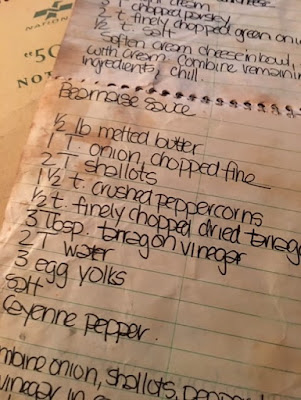 NATION
"50
NOT
T chopped parsley
t. finely chopped green oni
½ t. salt
Soften cream cheese in bowl,
with cream. Combine remain
ingredients; chill.
Bearnaise Sauce
½ lb melted butter
1 T. onion, chopped fine
2 T. shallots
1½ t. crushed peppercorns
½ t. finely chopped dried tarrago
3 Tbsp. tarragon vinegar
2 T water
3 egg yolks
Salt
Cayenne Pepper.
mbine onion, shallots, pepper
vinegar in